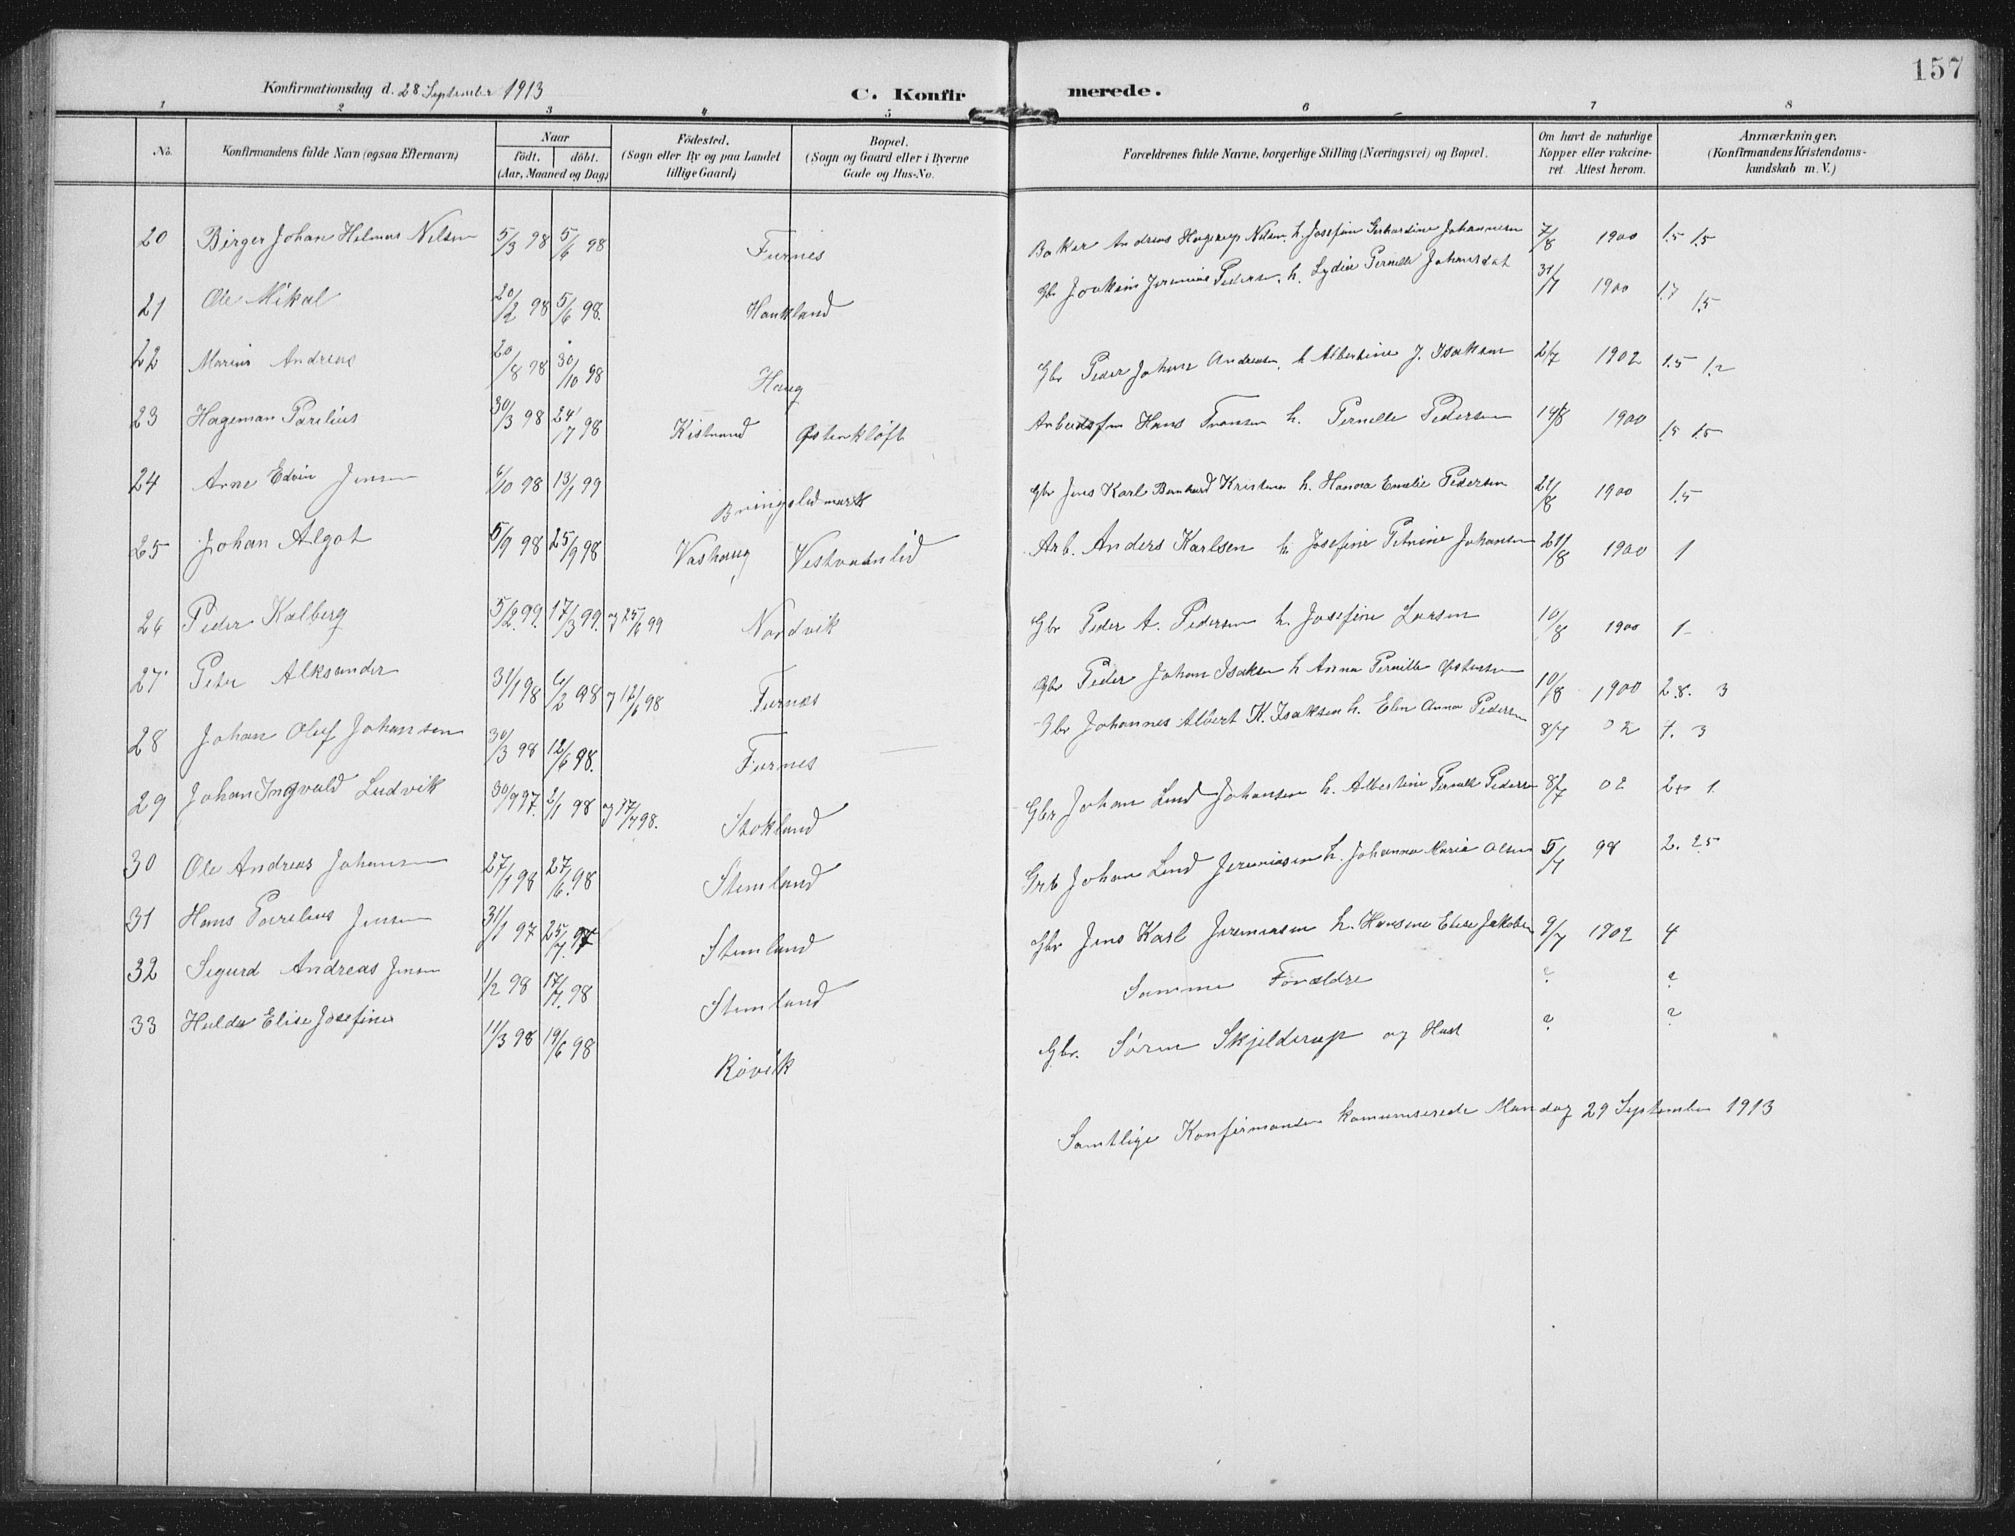 157
Konfirmationsdag d. 28 September 1913
C. Konfirmerede.
1 2 3 4 5 6 7 8
No.
Konfirmandens fulde Navn (ogsaa Efternavn)
Naar
födt. döbt.
(Aar, Maaned og Dag)
Födested.
(Sogn eller By og paa Landet
tillige Gaard)
Bopæl.
(Sogn og Gaard eller i Byerne
Gade og Hus-No.
Forældrenes fulde Navne, borgerlige Stilling (Næringsvei) og Bopæl.
Om havt de naturlige
Kopper eller vakcine-
ret. Attest herom.
Anmærkninger.
(Konfirmandens Kristendoms-
kundskab m. V.)
20 Birger Johan Hilmar Nilsen 5/3 98 5/6 98 Furnes Baker Andreas Hagerup Nilsen, h. Josefine Gerhardine Johannesen 7/8 1900 1.5 1.5
21 Ole Mikal 20/2 98 5/6 98. Haukland Gbr Joakim Jeremias Pedersen, h. Lydia Pernille Johansdat 31/7 1900 1.7 1.5
22 Marius Andreas 20/8 98 30/10 98 Haug Gbr Peder Johan Andreasen, h Albertine J. Isaksen 2/7 1902 1.5 1.2
23 Hageman Parelius 30/3 98 24/7 98 Kistrand Østenkløft Arbeidsfm Hans Fransen h. Pernille Pedersen 14/8 1900 1.5 1.5
24 Arne Edvin Jensen 6/10 98 13/1 99 Bringslidmark Gbr Jens Karl Bernhard Kristensen h. Hanna Emelie Pedersen 21/8 1900 1.5
25 Johan Algot 5/9 98 25/9 98 Vashaug Vestvatnlid Arb. Anders Karlsen h. Josefine Petrine Johansen 21/8 1900 1
26 Peder Kalberg 5/2 99. 17/3 99. J 25/6 99 Nordvik Gbr Peder A. Pedersen h. Josefine Larsen 10/8 1900 1
27 Peter Alksander 31/1 98 6/2 98 J 12/6 98 Furnes Gbr Peder Johan Isaksen h Anna Pernille Østensen 10/8 1900 2.8. 3
28 Johan Oluf Johansen 30/3 98 12/6 98. Furnes Gbr Johannes Albert K. Isaksen h. Elen Anna Pedersen 8/7 02 1. 3
29 Johan Ingvald Ludvik 30/9 97. 2/1 98 J 17/7 98. Stokland Gbr Johan Lind Johansen h. Albertine Pernille Pedersen 8/7 02 2.0 1
30 Ole Andreas Johansen 27/1 98 27/6. 98 Stemland Grb Johan Lind Jeremiasen h. Johanna Maria Olsen 5/7 98 2. 25
31 Hans Parelius Jensen 31/1 97 25/7. 97 Stemland Gbr Jens Karl Jeremiasen h. Hansine Elise Jakobsen 9/7 1902 4
32 Sigurd Andreas Jensen 1/2 98 17/7. 98 Stemland Samme Forældre ? ?
33 Hulda Elise Josefine 11/3 98 19/6 98 Røvik Gbr. Søren Skjelderup og Hust ? ?
Samtlige Konfirmander kommuniserede Mandag 29 September 1913